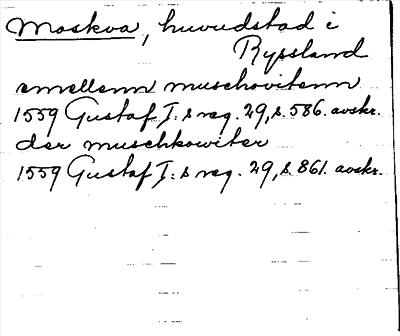 Moskva, huvudstad i
Ryssland
emellenn muschovitenn
1559 Gustaf I:s reg. 29, s. 586. avskr.
der muschkowiter
1559 Gustaf I:s reg. 29, s. 861. avskr.